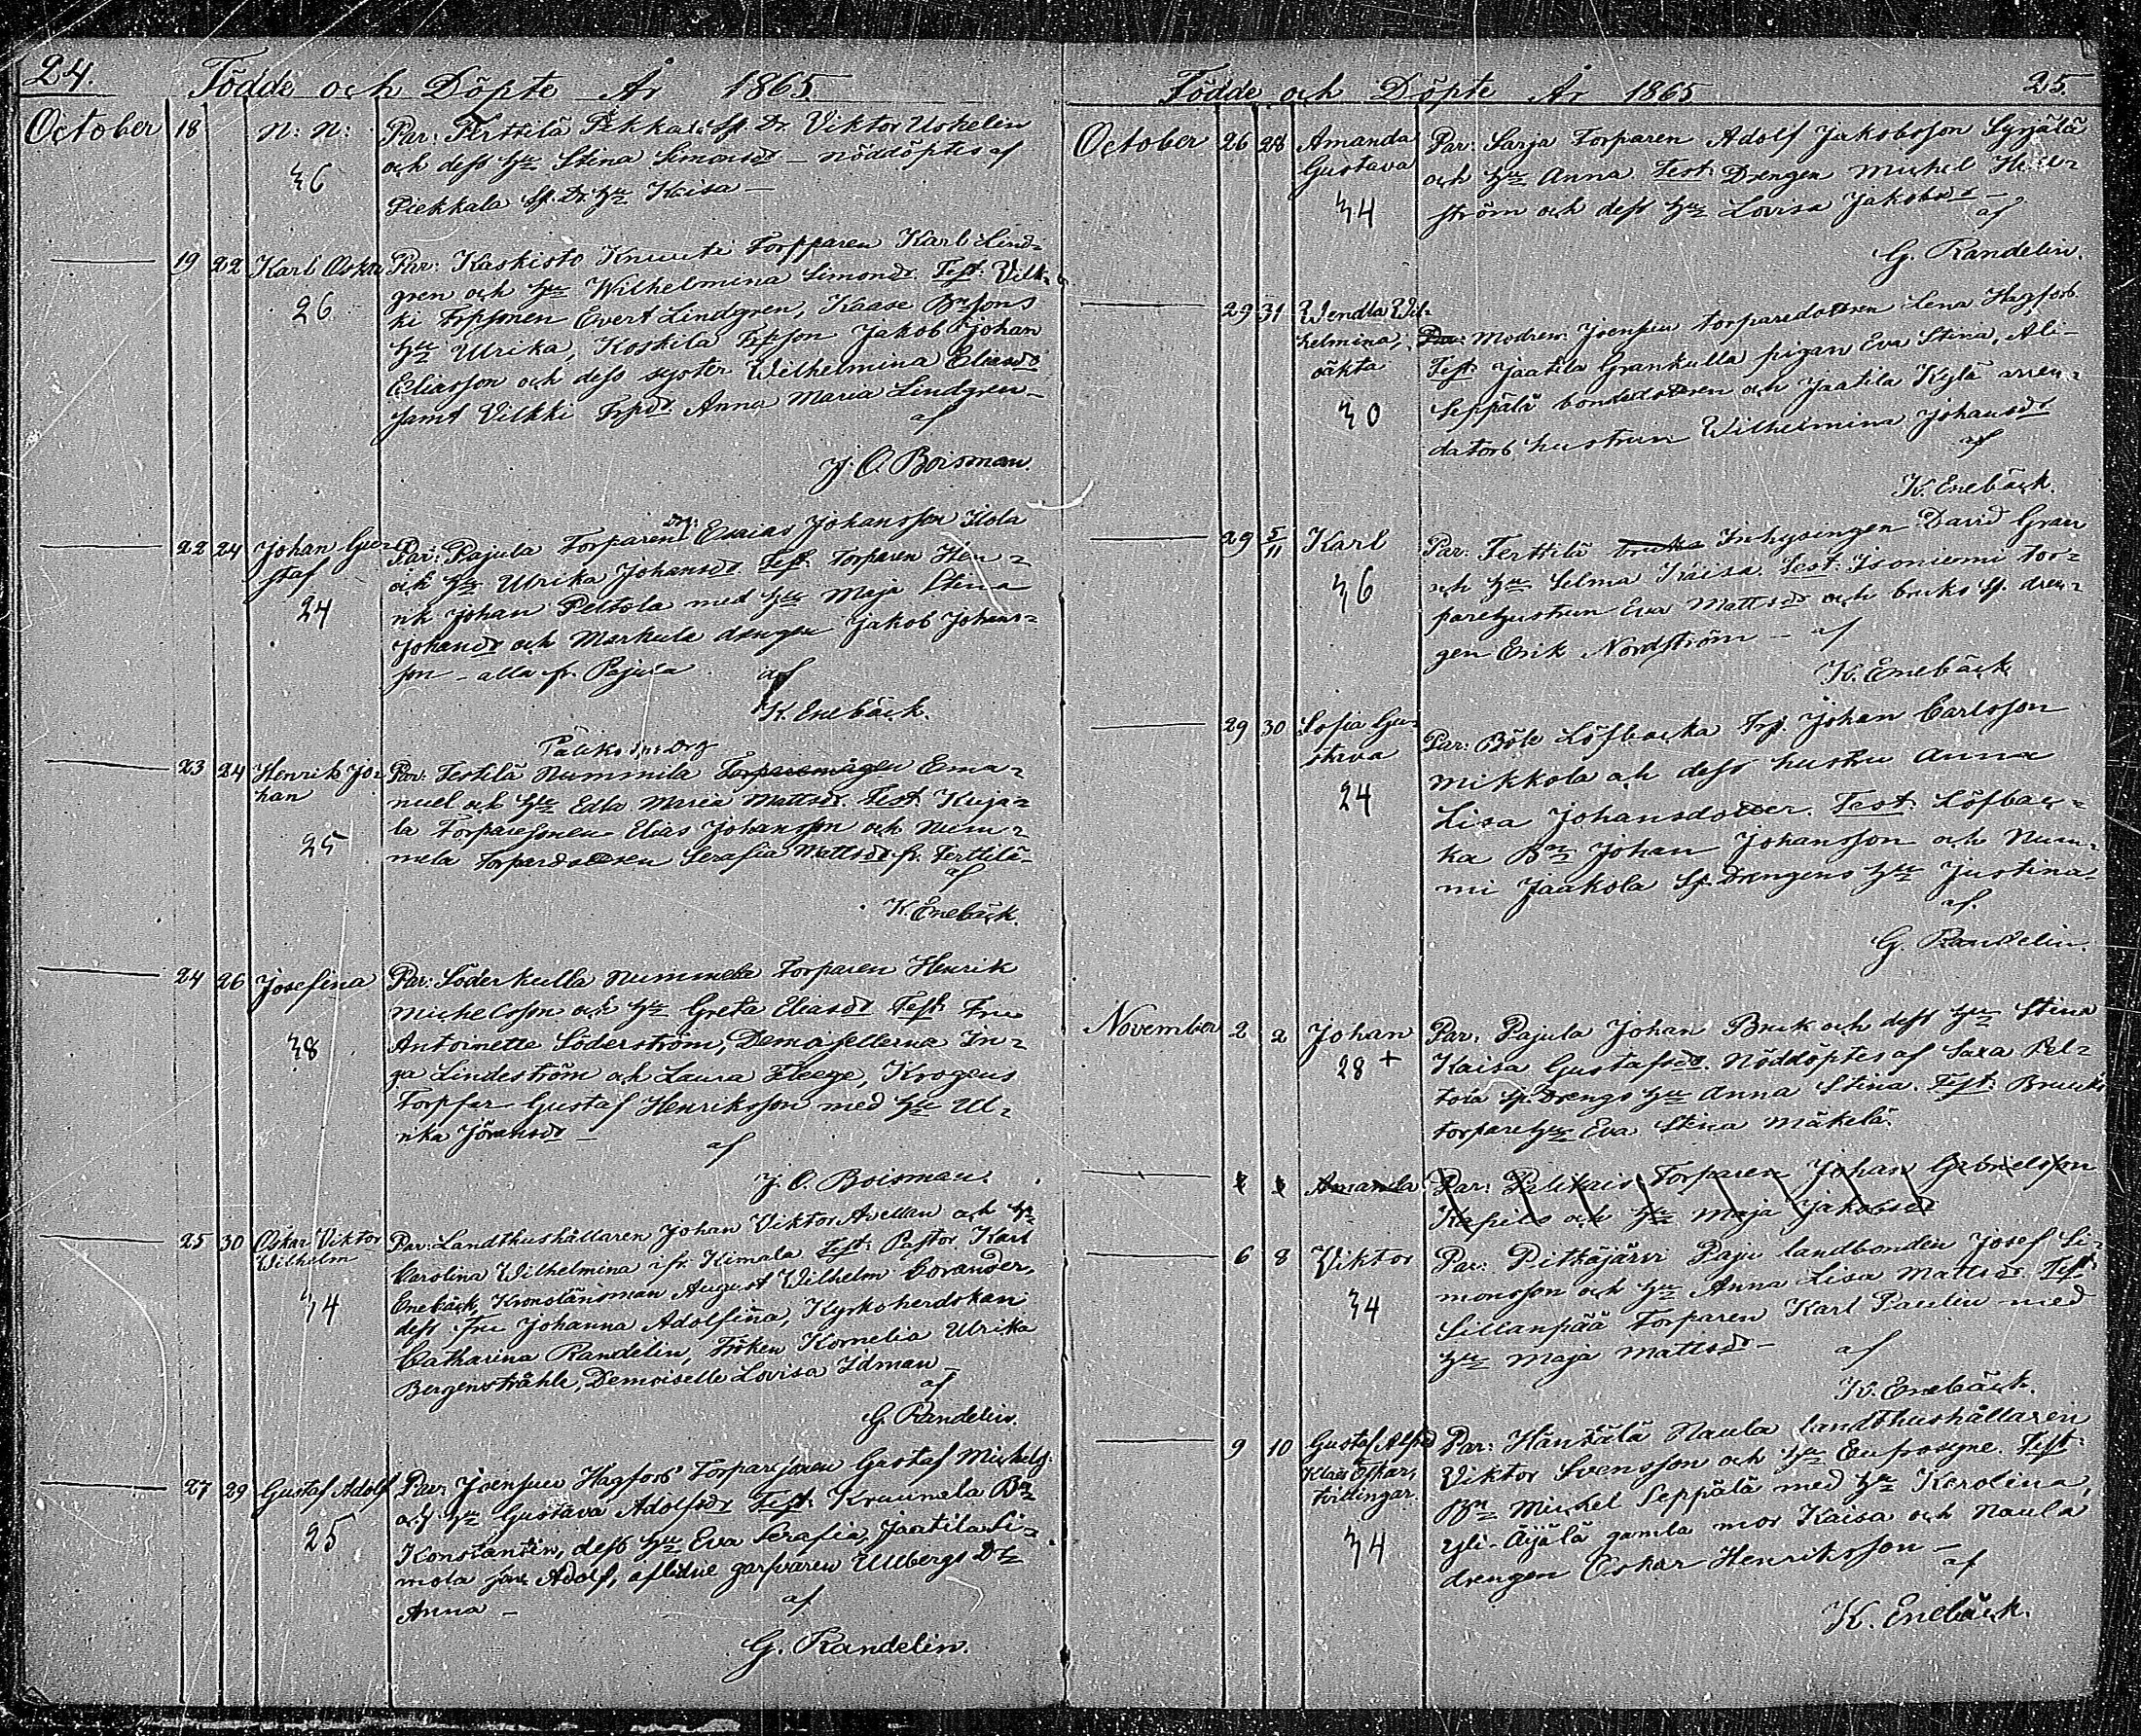 24.
Födde och Döpte År 1865.
October 18 N: N: Par: Perttilä Pekkala Sp. Dr. Viktor Uskelin
och dess hu Stina Simonsdr nöddöptes af
36
Piekkala Sp. Dr. hu Kaisa —
19 22 Karl Oskar Par: Kaskisto Knuuti Torpparen Karl Lind-
gren och hu Wilhelmina Simonsdr. Test. Vilk-
26
ki Trpsonen Evert Lindgren, Kaase Bn sons
hu Ulrika, Koskila Trpson Jakob Johan
Eliasson och dess syster Wilhelmina Eliasdr
samt Vilkki Trpdr Anna Maria Lindgren —
af
J. O. Boisman.
22 24 Johan Gu-
staf
24
Par: Pajula Torparen Drg: Esaias Johansson Ilola
och hu Ulrika Johansdr Test. Torparen Hen-
rik Johan Peltola med hu Maja Stina
Johansdr och Markula drengen Jakob Johans-
son — alla fr. Pajula af
K. Enebäck.
Palikais Drg
23 24 Henrik Jo-
han
25
Par: Terttilä Nummila Torparemågen Ema-
nuel och hu Edla Maria Mattsdr. Test. Kuja-
la Torparesonen Elias Johansson och Num-
mela Torpardottren Serafia Mattsdr fr. Terttilä —
af
K. Enebäck.
24 26 Josefina
38
Par: Söderkulla Nummela Torparen Henrik
Michelsson och hu Greta Eliasdr Test. Fru
Antoinette Söderström, Demoisellerna In-
ga Lindeström och Laura Fleege, Krogens
Torpar Gustaf Henriksson med hu Ul-
rika Göransdr —
af
J. O. Boisman.
25 30 Oskar Viktor
Wilhelm
34
Par: Landthushållaren Johan Viktor Avellan och hu
Carolina Wilhelmina ifr. Kimala Test. Pastor Karl
Enebäck, Kronolänsman August Wilhelm Corander,
dess fru Johanna Adolfina, Kyrkoherdskan
Catharina Randelin, Fröken Kornelia Ulrika
Bergenstråhle, Demoiselle Lovisa Idman —
af
G. Randelin.
27 29 Gustaf Adolf
25
Par: Joensuu Hagfors Torparsonen Gustaf Michelss.
och hu Gustava Adolfsdr Test. Kruunela Bn
Konstantin, dess hu Eva Serafia, Jaatila Si-
mola son Adolf, aflidne garfvaren Ullbergs Dr
Anna —
af
G. Randelin.
Födde och Döpte År 1865
25.
October 26 28 Amanda
Gustava
34
Par: Sarja Torparen Adolf Jakobsson Syrjälä
och hu Anna Test. Drengen Michel
ström och dess hu Lovisa Jakobsdr —
af
G. Randelin.
29 31 Wendla Wil-
helmina,
oäkta
30
Par: Modren: Joensuu torparedottren Lena Hagfors
Test. Jaatila Grankulla pigan Eva Stina, Ali-
Seppälä bondedottren och Jaatila Kylä arren-
dators hustrun Wilhelmina Johansdr
af
K. Enebäck.
29 5/11 Karl
36
Par: Terttilä bruks Inhysingen David Gran
och hu Selma Kaisa. Test. Isoniemi tor-
parehustrun Eva Mattsdr och bruks Sp. dren-
gen Erik Nordström — af
K. Enebäck
29 30 Sofia Gu-
stava
24
Par: Böle Löfbacka Trp. Johan Carlsson
Mikkola och dess hustru Anna
Lisa Johansdotter. Test. Löfbac-
ka Bn Johan Johansson och Num-
mi Jaakola Sp. Drengens hu Justina
af
G. Randelin.
November 2 2 Johan
28 +
Par: Pajula Johan Bruk och dess hu Stina
Kaisa Gustafsdr. Nöddöptes af Saxa Pel-
tola sp. Drengs hu Anna Stina. Test. Bruuks
torpare hu Eva Stina Mäkelä.
Amanda Par: Palikais Torparen Johan Gabrielsson
och hu Maja Jakobsdr
6 8 Viktor
34
Par: Pitkäjärvi Papu landbonden Josef Si-
monsson och hu Anna Lisa Mattsdr. Test.
Sillanpää Torparen Karl Paulin med
hu Maja Mattsdr — af
K. Enebäck.
9 10 Gustaf Alfred
Klaes Oskar,
tvillingar.
34
Par: Häntälä Naula landthushållaren
Viktor Svensson och hu Eufrosyne. Test.
Bn Michel Seppälä med hu Karolina,
Yli-Äijälä gamla mor Kaisa och Naula
drengen Oskar Henriksson —
af
K. Enebäck.